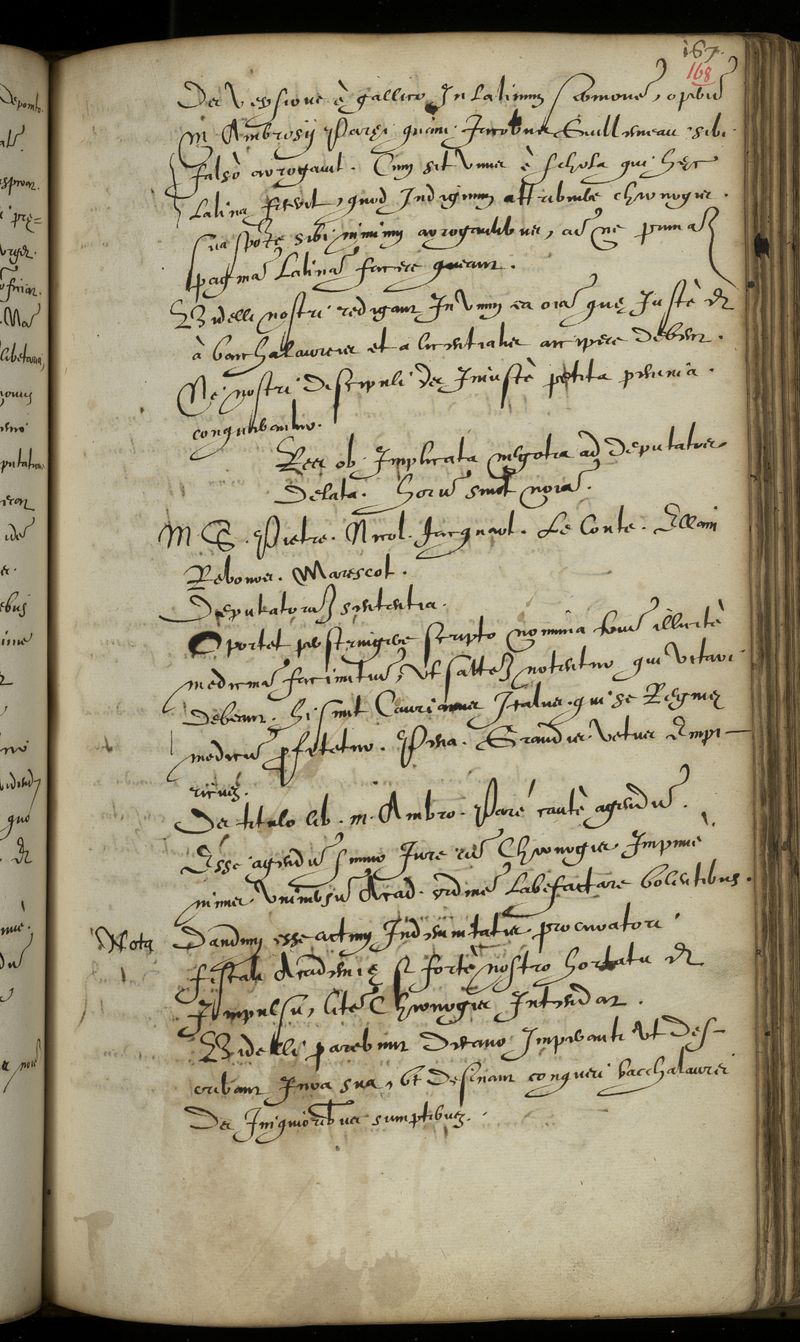 167.
168
De Versione è gallico In Latinum sermonem, operum
M. Ambrosij Parei quam Jacobus Guillemeau sibi
falsò arrogavit. Cum sit unus è schola qui hęc
Latina fecit, quod Indignum attribuere chirurgis
sua sponte sibi nimium arrogantibus, ac ne primam
pagmam Latinam facere queant.
Bidelli nostri redigant In Unum ea oia quę Justè
à bacchalaureis et a licentiatis accipere debent.
Ne nostri discipuli de Iniustè petita pecunia
conquerantur.
Res ob Implicata negotia ad deputatos
delata. horum sunt noia.
M. G. Pietre. Nicol. Jacquart. Le Conte. Ellain
Rebours. Marescot.
Deputatorum sententia.
Oportet perstringere scripto nomina horum illicitè
medicinam facientium, Ut saltem notentur qui vitari
debeant. hi sunt Cavrianus Italus qui se Reginę
medicum profitetur. Pena. Grandis vetus Empi-
ricus.
De titulo lib. m. Ambro. Paré cautè agendum.
Esse agendum summo Jure cum Chirurgis
nimis Universum Acad. ordinem Labefactare volentibus.
Nota
Dandum esse actum Indemnitatis procuratori
fiscali Academię si fortè nostro hortatu
Impulsu, litem Chirurgis Intendat.
Bidelli parebunt Decano Imperanti ut des-
cribant Jura sua, ut desinant conqueri bacchalaurei
De Iniquioribus sumptibus.